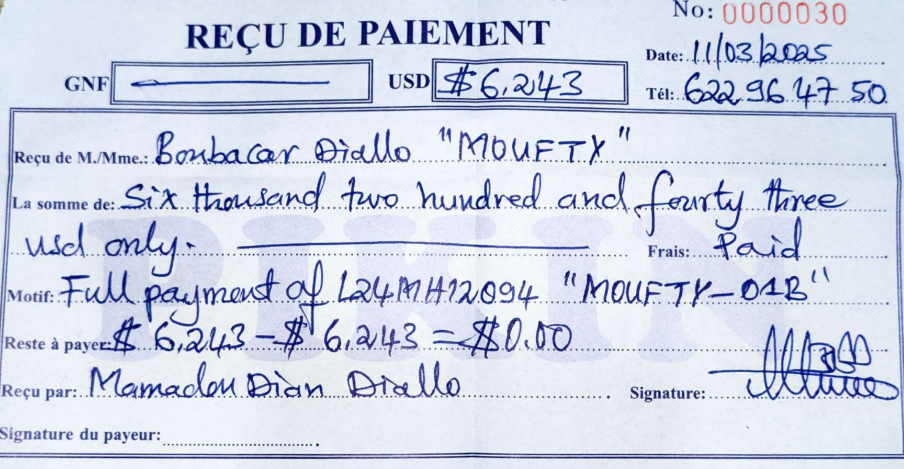 No: 0000030
REÇU DE PAIEMENT
Date: 11/03/2025
GNF USD $6,243 Tél: 622 96 47 50
Reçu de M./Mme.: Boubacar Diallo "MOUFTY"
La somme de: Six thousand two hundred and fourty three
usd only. Frais: Paid
Motif: Full payment of L24MH12094 "MOUFTY-01B"
Reste à payer: $ 6,243 - $ 6,243 = $0.00
Reçu par: Mamadou Dian Diallo Signature:
Signature du payeur:
PIKIN